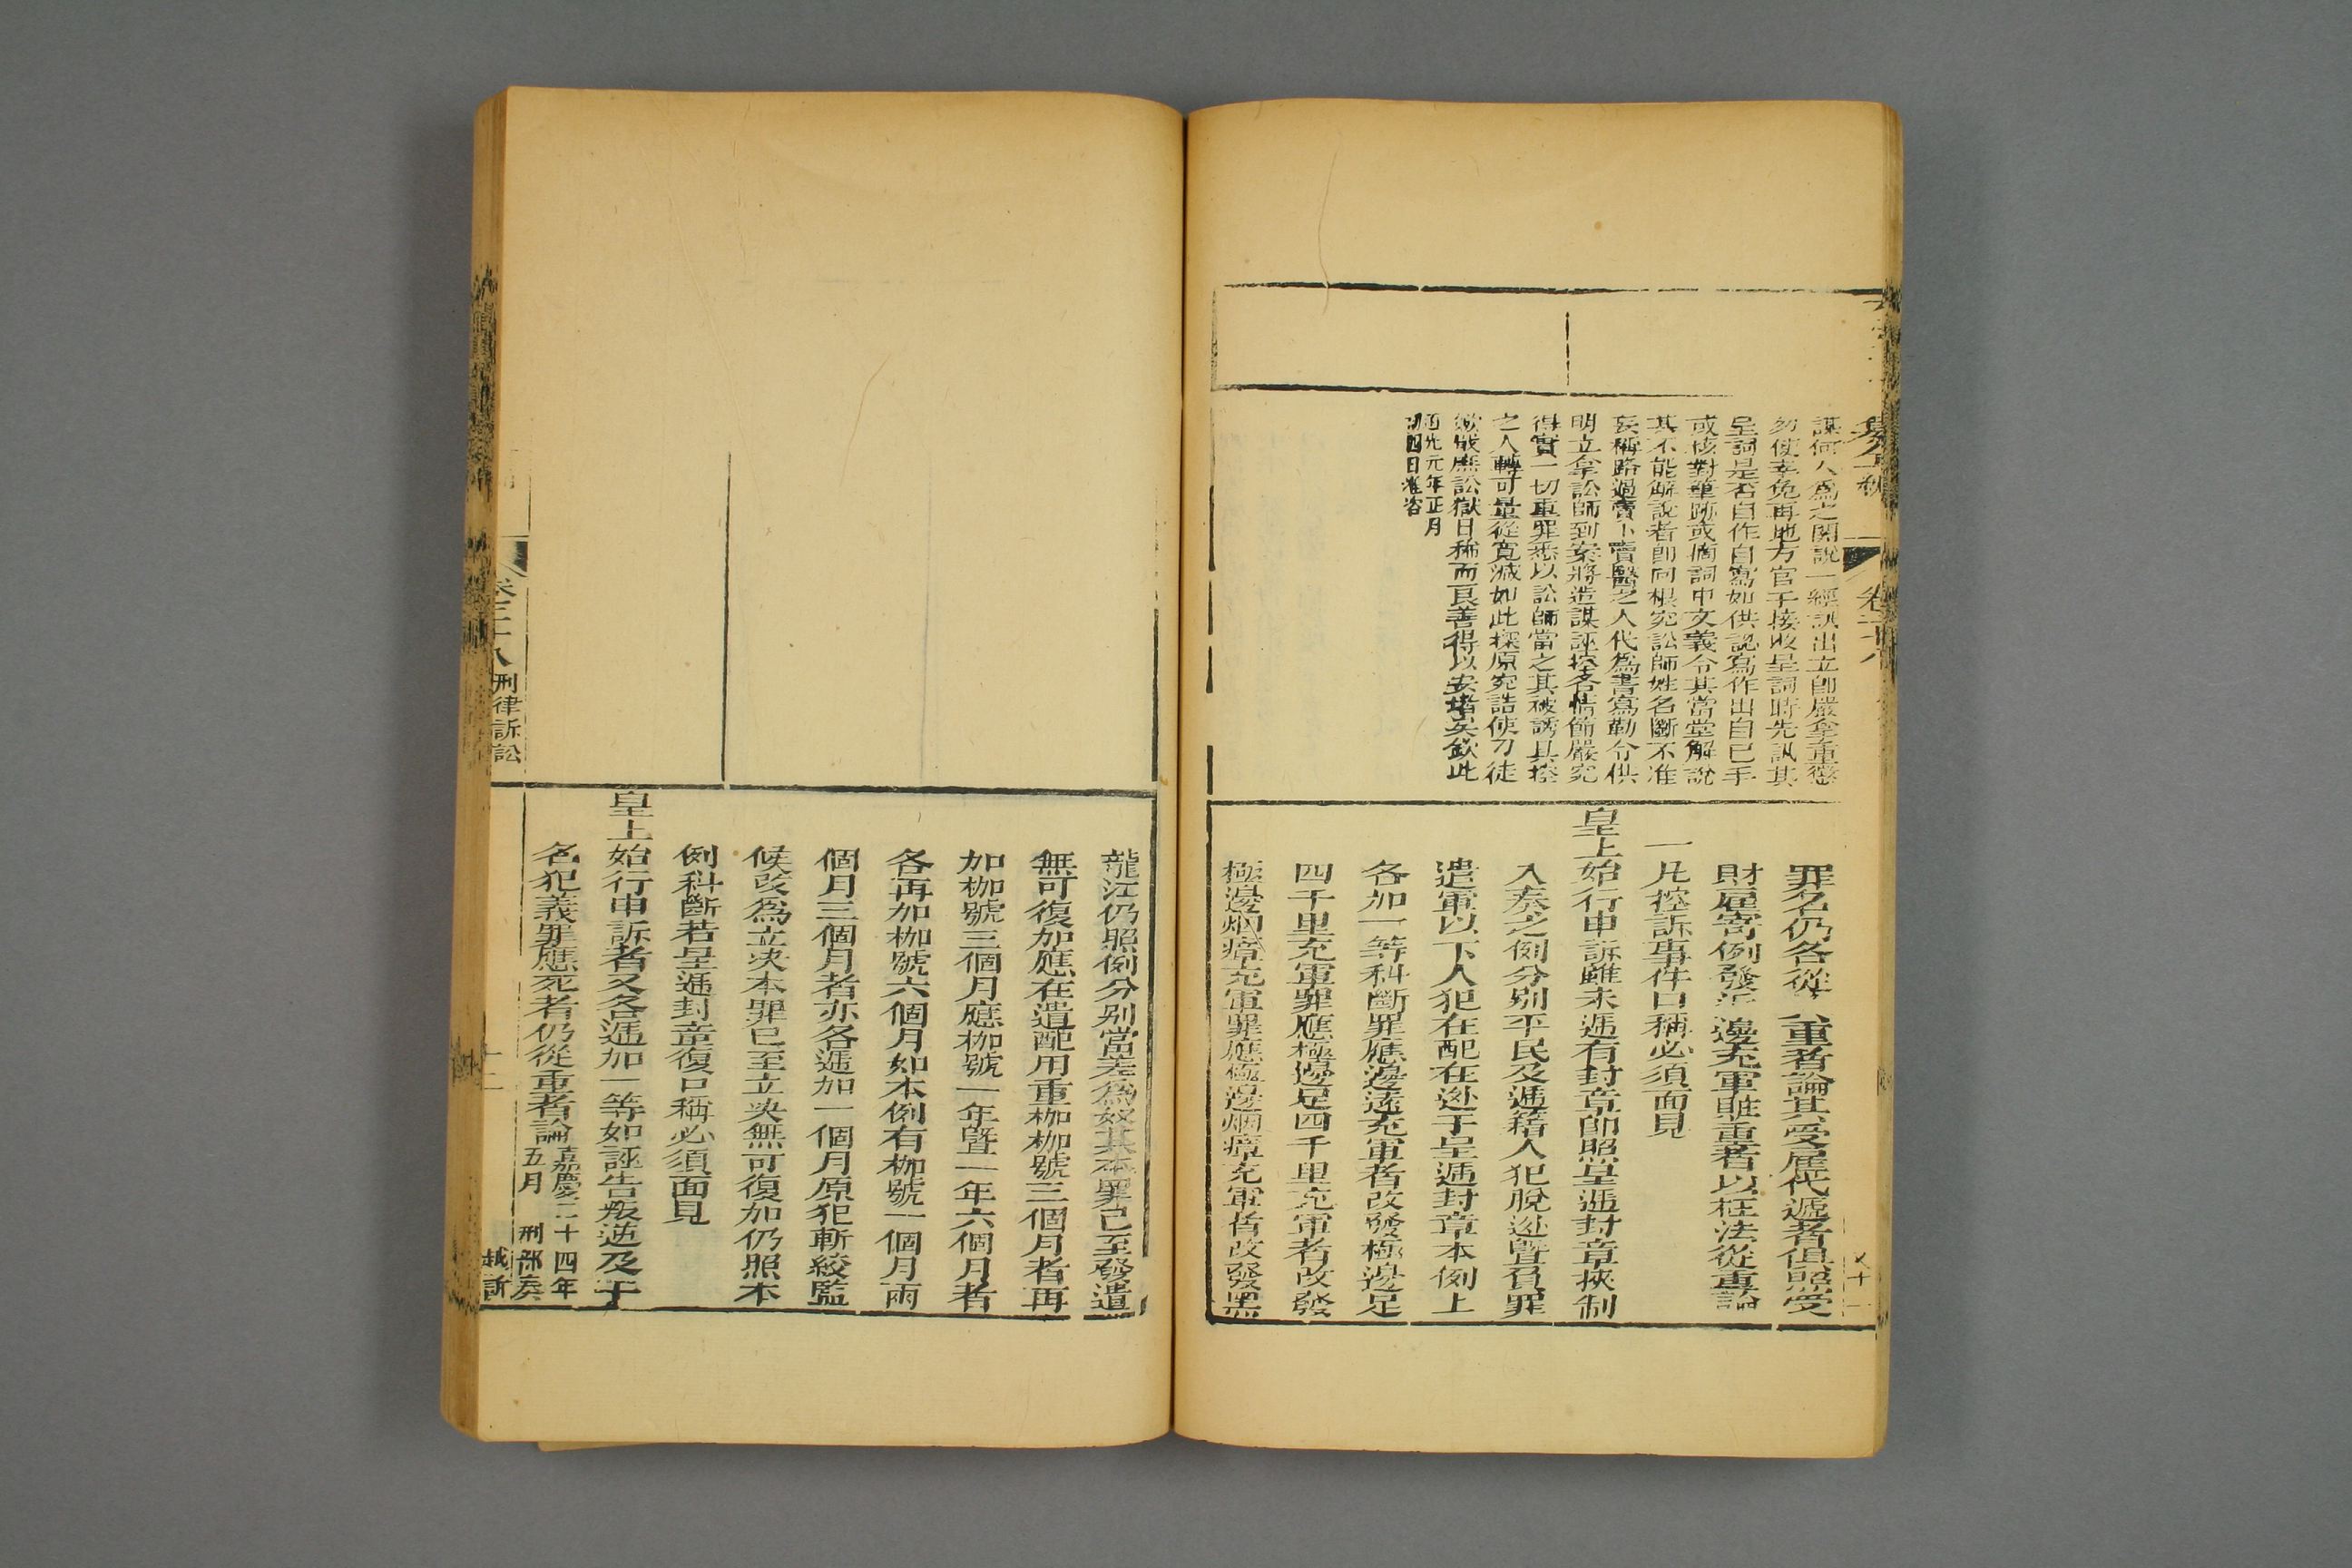 謀何人爲之關說一經訊出立卽嚴拿重懲
勿使幸免再地方官于接收呈詞時先訊其
呈詞是否自作自寫如供認寫作出自己手
或核對筆跡或摘詞中文義令其當堂解說
其不能解說者卽向根究訟師姓名斷不准
妄稱路過賣卜賣醫之人代爲書寫勒令供
明立拿訟師到案將造謀誣控各情節嚴究
得實一切重罪悉以訟師當之其被誘具控
之人轉可量從寬減如此探原究詰使刁徒
斂戢庶訟獄日稀而良善得以安堵矣欽此
年正月
四日准咨
罪名仍各從重者論其受雇代遞者俱照受
財雇寄例發近邊充軍贓重者以枉法從重論
一凡控訴事件口稱必須面見
皇上始行申訴雖未遞有封章卽照呈遞封章挾制
入奏之例分別平民及遞籍人犯脫逃曁負罪
遣軍以下人犯在配在逃于呈遞封章本例上
各加一等科斷罪應邊遠充軍者改發極邊足
四千里充軍罪應極邊足四千里充軍者改發
極邊烟瘴充軍罪應極邊烟瘴充軍者改發黑
龍江仍照例分别當差爲奴其本罪已至發遣
無可復加應在遣配用重枷枷號三個月者再
加枷號三個月應枷號一年曁一年六個月者
各再加枷號六個月如本例有枷號一個月兩
個月三個月者亦各遞加一個月原犯斬絞監
候改爲立决本罪已至立决無可復加仍照本
例科斷若呈遞封章復口稱必須面見
皇上始行申訴者又各遞加一等如誣告叛逆及干
名犯義罪應死者仍從重者論嘉慶二十四年
五月 刑部奏
卷三十八 刑律訴訟
十二
越訴